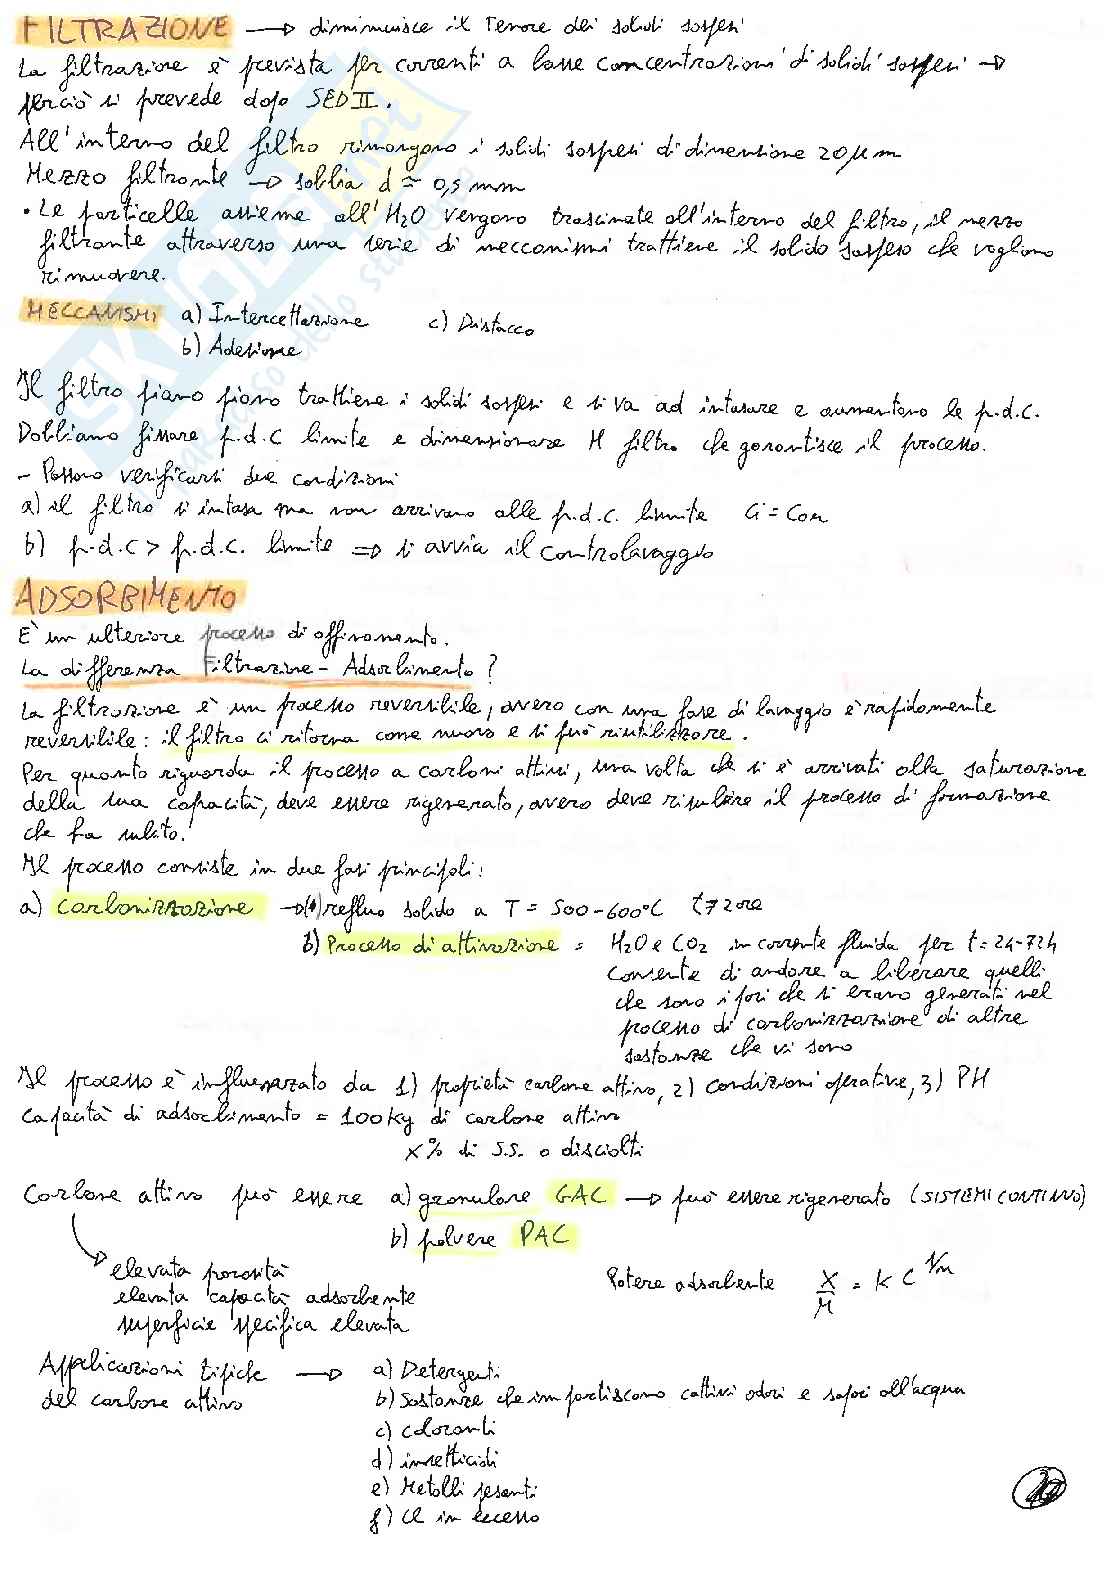 FILTRAZIONE → diminuisce il Tenore dei solidi sospesi
La filtrazione è prevista per correnti a basse concentrazioni di solidi sospesi →
perciò si prevede dopo SED II.
All'interno del filtro rimangono i solidi sospesi di dimensione 20 μm
Mezzo filtrante → sabbia d ≃ 0,5 mm
• Le particelle assieme all'H2O vengono trascinate all'interno del filtro, il mezzo
filtrante attraverso una serie di meccanismi trattiene il solido sospeso che vogliamo
rimuovere.
MECCANISMI a) Intercettazione c) Distacco
b) Adesione
Il filtro piano piano trattiene i solidi sospesi e si va ad intasare e aumentano le p.d.c.
Dobbiamo fissare p.d.c limite e dimensionare il filtro che garantisce il processo.
- Possono verificarsi due condizioni
a) il filtro si intasa ma non arrivano alle p.d.c. limite
b) p.d.c > p.d.c. limite ⇒ si avvia il controlavaggio
ADSORBIMENTO
È un ulteriore processo di affinamento.
La differenza Filtrazione - Adsorbimento?
La filtrazione è un processo reversibile, ovvero con una fase di lavaggio è rapidamente
reversibile: il filtro ci ritorna come nuovo e si può riutilizzare.
Per quanto riguarda il processo a carboni attivi, una volta che si è arrivati alla saturazione
della sua capacità, deve essere rigenerato, ovvero deve risubire il processo di formazione
che ha subito.
Il processo consiste in due fasi principali:
a) carbonizzazione → refluo solido a T = 500-600°C
b) Processo di attivazione = H2O e CO2 in corrente fluida per t = 24-72h
Consente di andare a liberare quelli
che sono i fori che si erano generati nel
processo di carbonizzazione di altre
sostanze che vi sono
Il processo è influenzato da 1) proprietà carbone attivo, 2) condizioni operative, 3) PH
Capacità di adsorbimento = 100 kg di carbone attivo
x% di S.S. o disciolti
Carbone attivo può essere a) granulare GAC → può essere rigenerato (SISTEMI CONTINUO)
b) polvere PAC
elevata porosità
elevata capacità adsorbente
superficie specifica elevata
Potere adsorbente X/M = K C^1/n
Applicazioni tipiche → a) Detergenti
del carbone attivo b) Sostanze che impartiscono cattivi odori e sapori all'acqua
c) coloranti
d) insetticidi
e) Metalli pesanti
f) Cl in eccesso